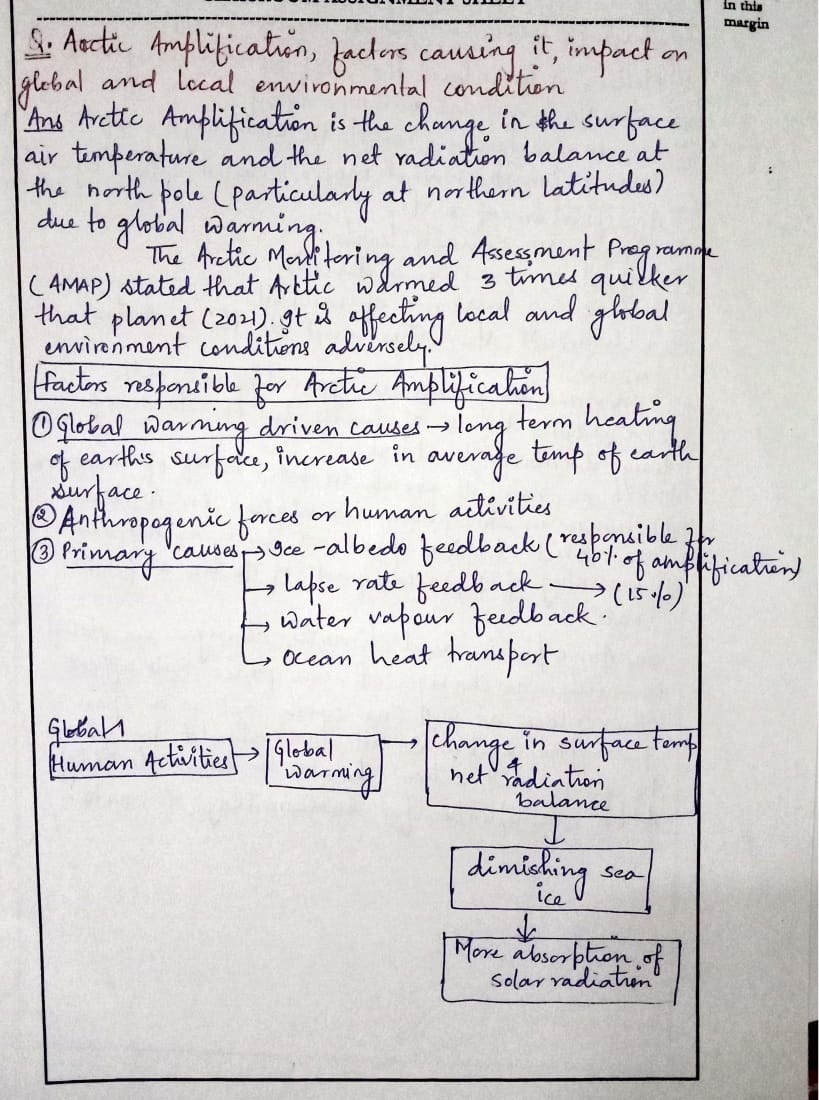 in this
margin
Q. Arctic Amplification, factors causing it, impact on
global and local environmental condition
Ans Arctic Amplification is the change in the surface
air temperature and the net radiation balance at
the north pole (particularly at northern latitudes)
due to global warming.
The Arctic Monitoring and Assessment Programme
(AMAP) stated that Arctic warmed 3 times quicker
that planet (2021). It is affecting local and global
environment conditions adversely.
factors responsible for Arctic Amplification
① Global warming driven causes → long term heating
of earth's surface, increase in average temp of earth
surface.
② Anthropogenic forces or human activities
③ Primary causes → Ice-albedo feedback (responsible for
40% of amplification)
→ Lapse rate feedback → (15%)
→ water vapour feedback.
→ ocean heat transport
Global
Human Activities → Global warming → Change in surface temp
& net radiation
balance
↓
dimishing sea
ice
↓
More absorption of
solar radiation